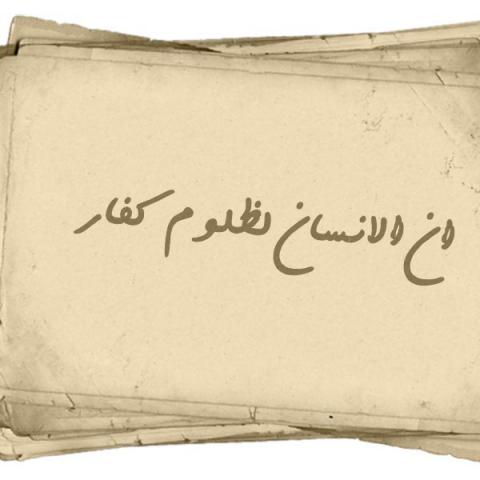 ان الانسان لظلوم كفار